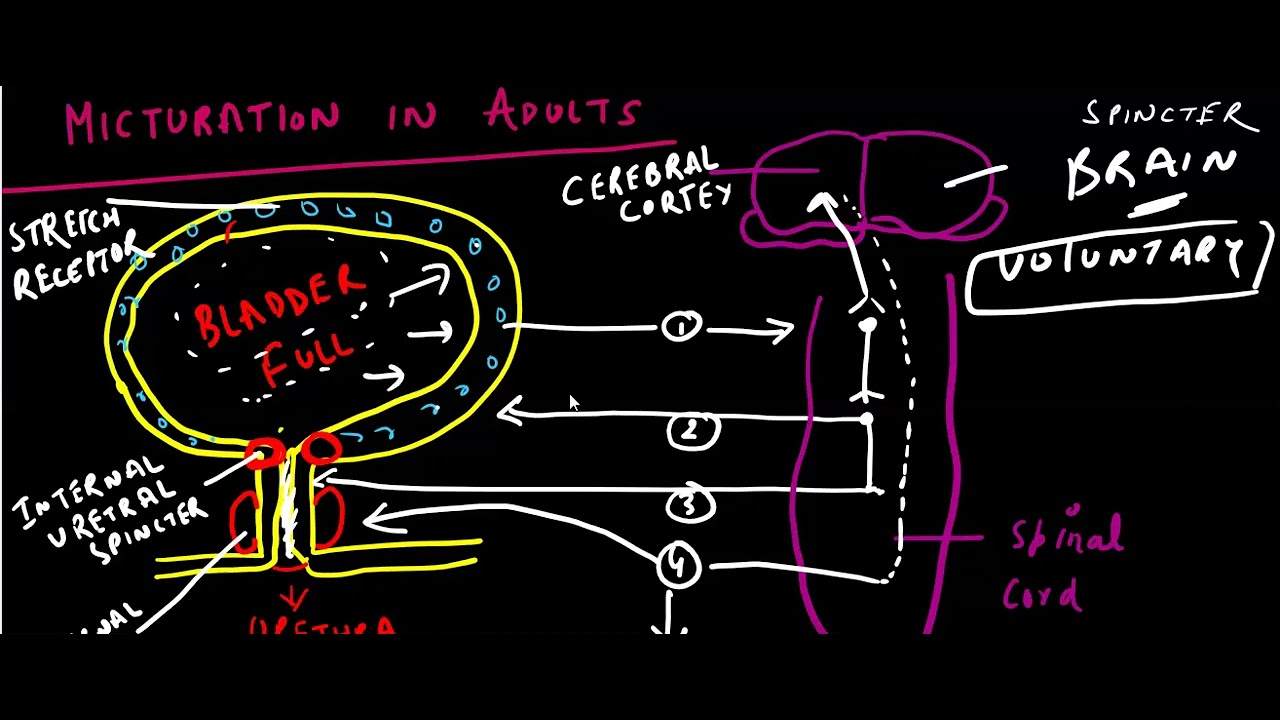 MICTURATION IN ADULTS
SPINCTER
BRAIN
VOLUNTARY
CEREBRAL
CORTEY
STRETCH
RECEPTOR
BLADDER
FULL
1
2
3
4
INTERNAL
URETRAL
SPINCTER
URETHRA
Spinal
Cord